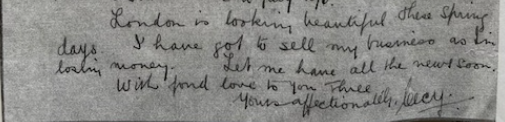 London is looking beautiful these Spring
days. I have got to sell my business as im
losing money. Let me have all the news soon.
With fond love to you three
Yours affectionately, Cecy.